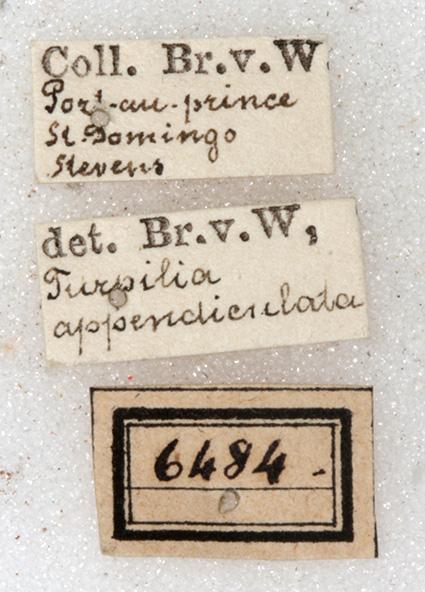 Coll. Br.v.W
Port-au-prince
St.Domingo
Stevens
det. Br.v.W,
Turpilia
appendiculata
6484.